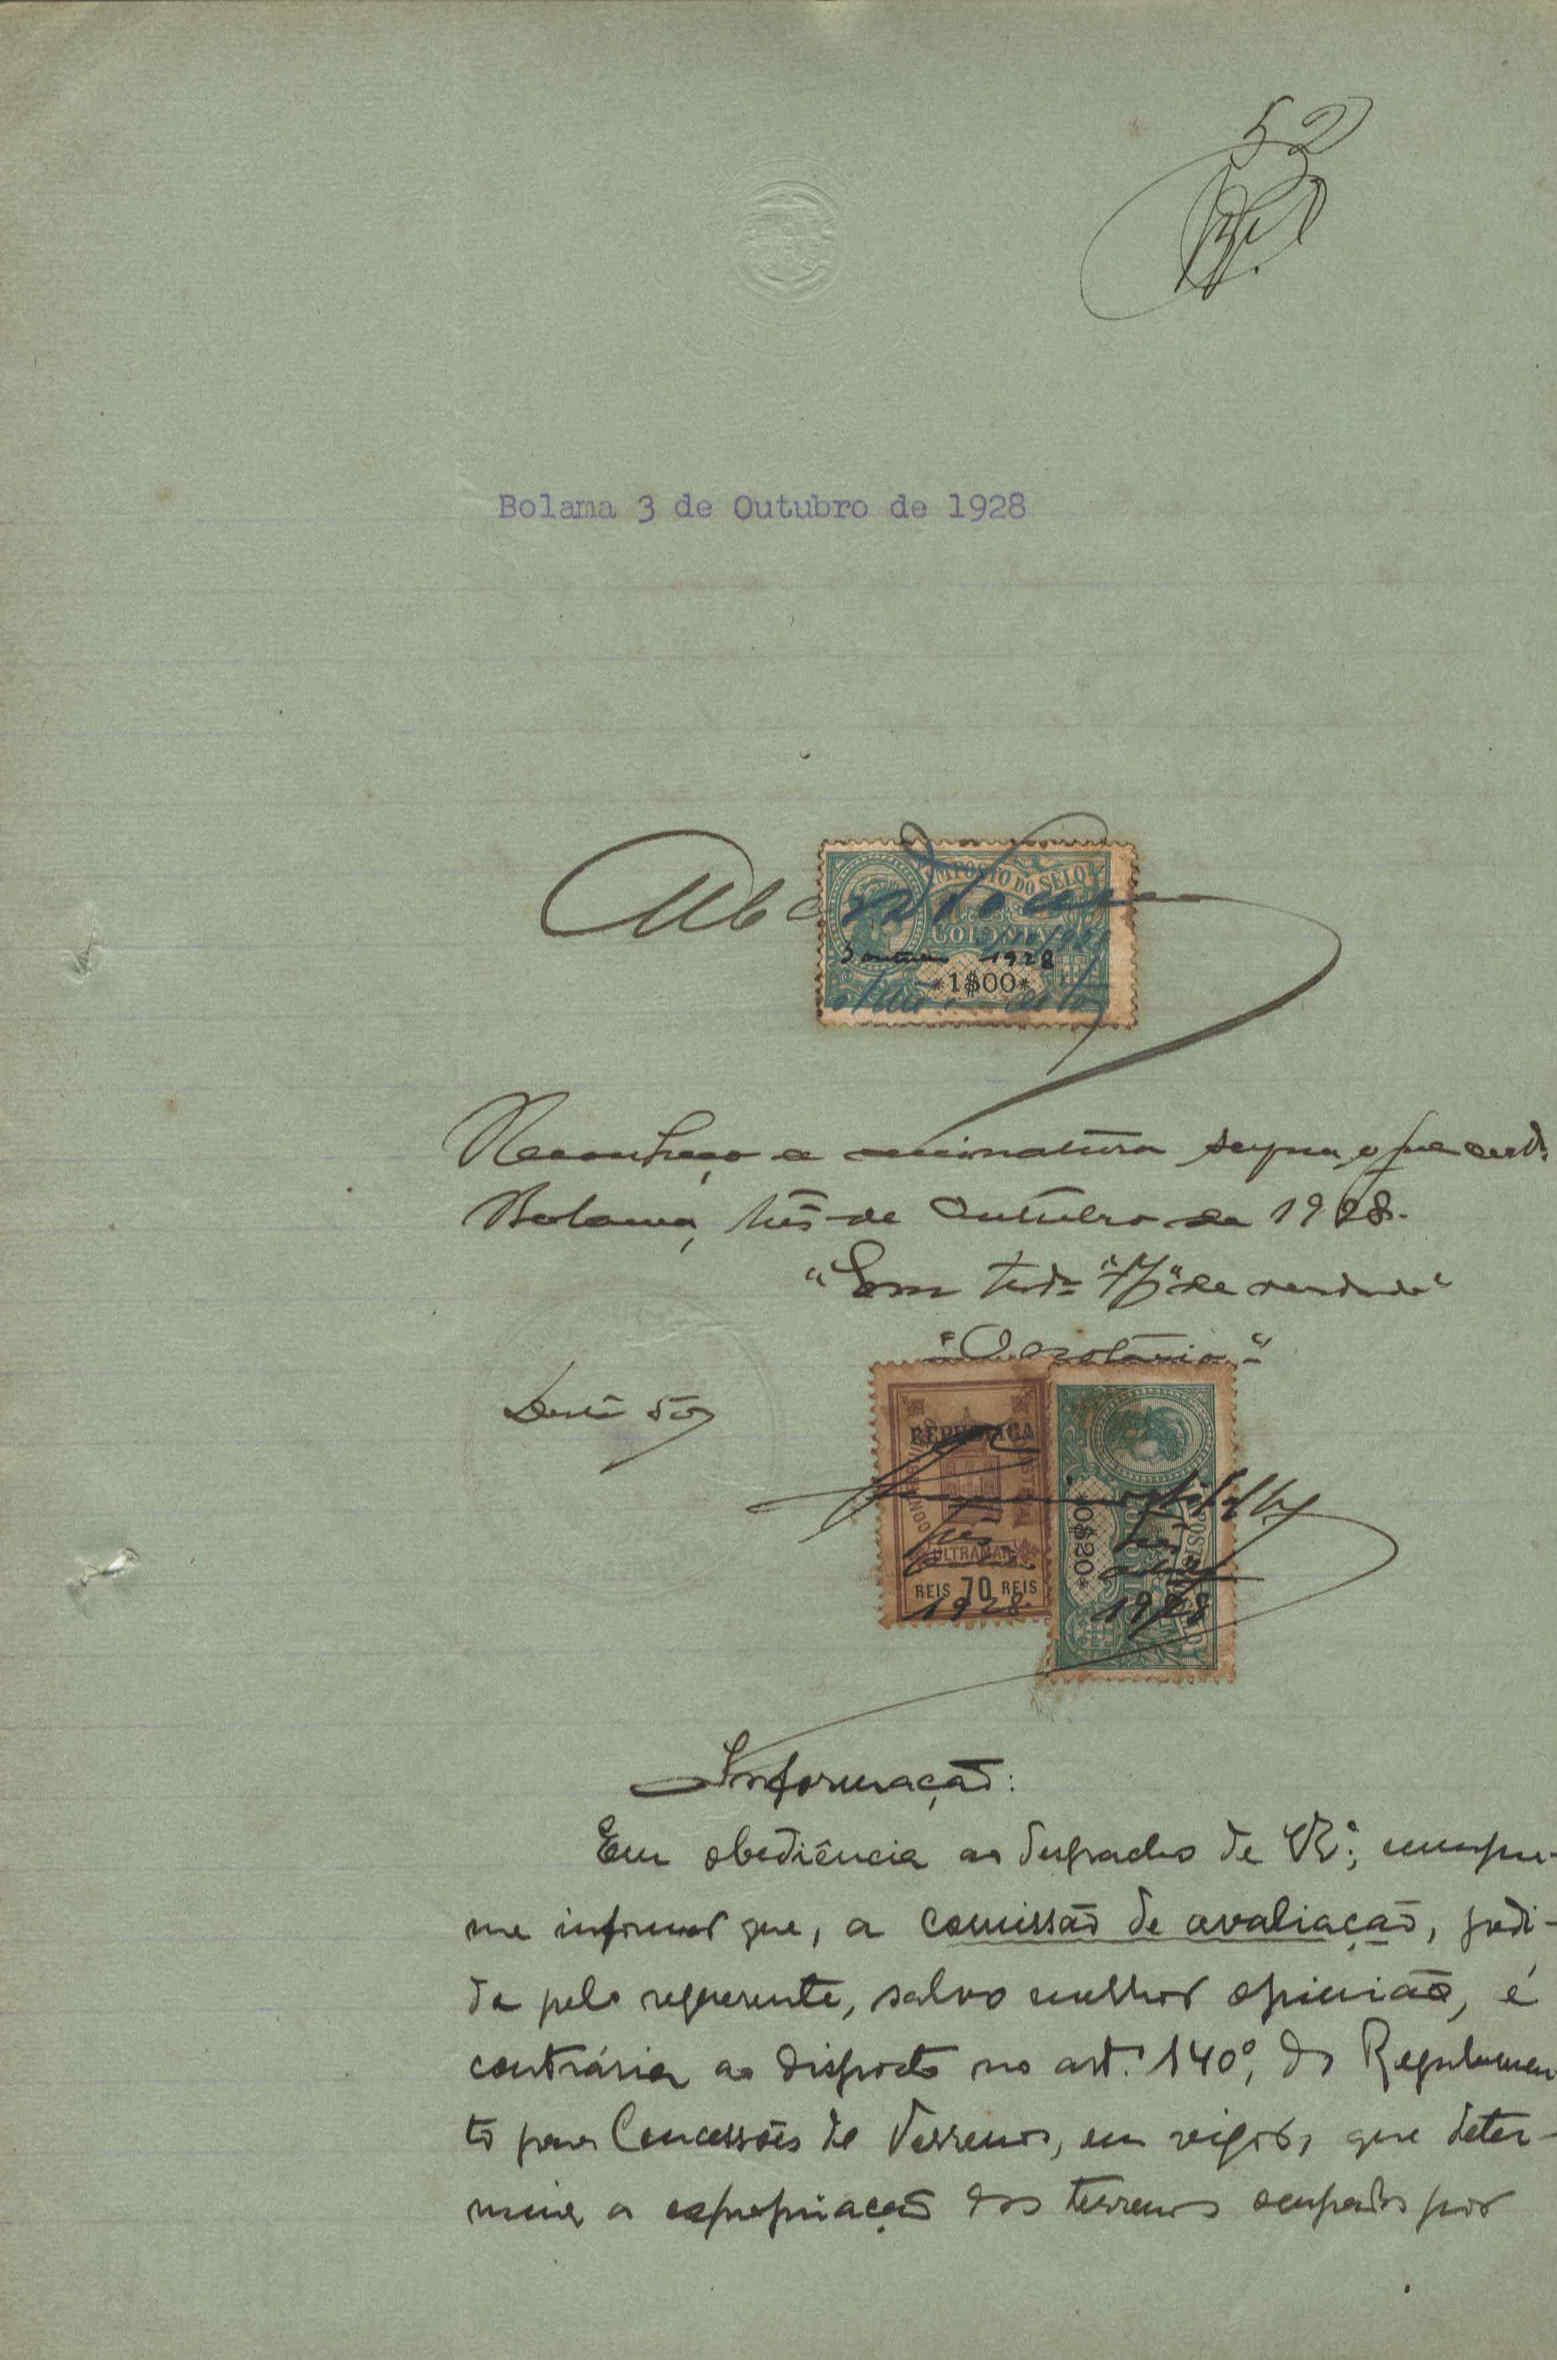 52
Bolama 3 de Outubro de 1928
IMPOSTO DO SELO
3 outubro 1928
*1$00*
Reconheço a assinatura supra
Bolama, três de Outubro de 1928.
"Em testº de verdade"
"O Notário"
REPUBLICA
CONTRIBUIÇÃO
ULTRAMAR
REIS 70 REIS
1928
*0$20*
1928
Informação:
Em obediência ao despacho de V. Exª; cumpre-
me informar que, a comissão de avaliação, pedi-
da pelo requerente, salvo melhor opinião, é
contrária ao disposto no art.º 140º, do Regulamen
to para Concessões de Terrenos, em vigor, que deter-
mina a expropriação dos terrenos ocupados por